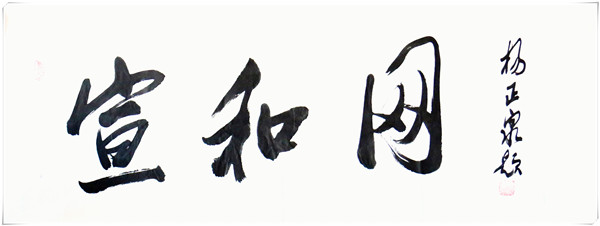 宣和网
杨正泉题